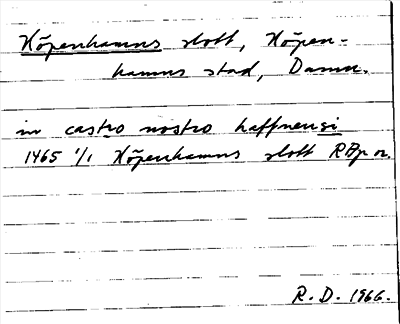 Köpenhamns slott, Köpen-
hamns stad, Danm.
in castro nostro haffnensi
1465 1/1 Köpenhamns slott RPp or.
R.D. 1966.